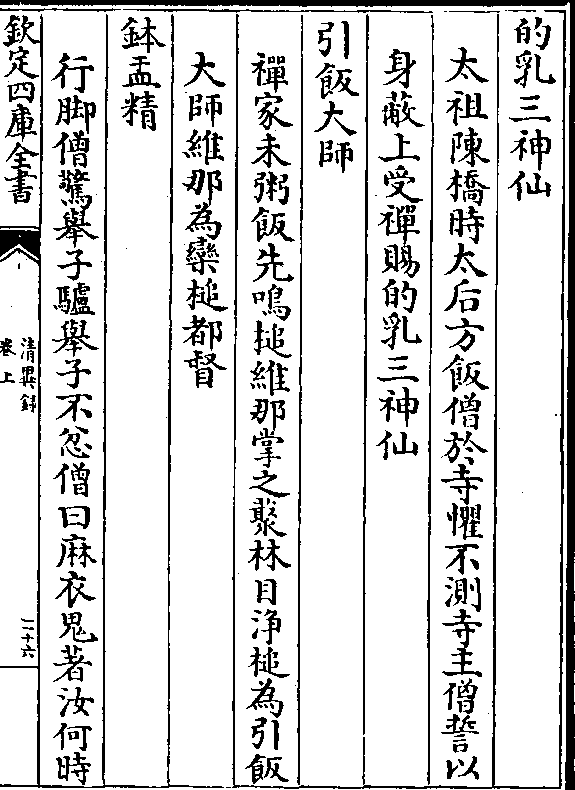 的乳三神仙
太祖陳橋時太后方飯僧於寺懼不測寺主僧誓以
身蔽上受禪賜的乳三神仙
引飯大師
禪家未粥飯先鳴搥維那掌之叢林目浄槌為引飯
大師維那為欒槌都督
鉢盂精
行脚僧驚舉子驢舉子不忿僧曰麻衣鬼著汝何時
欽定四庫全書
清異録
卷上
二十六